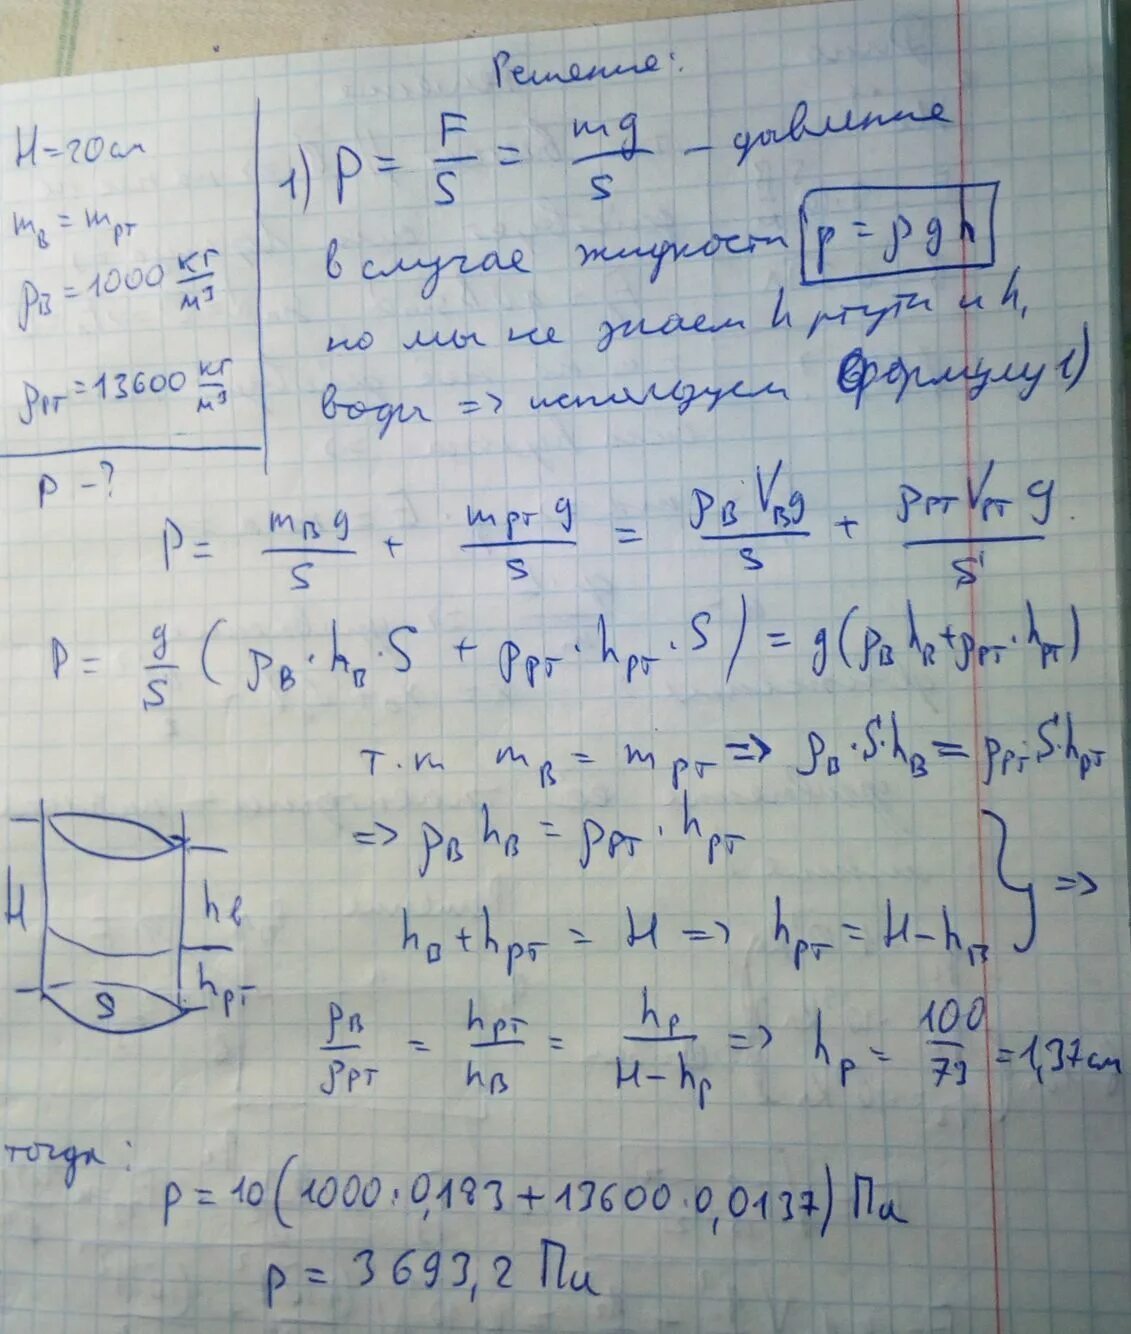 Решение:
H = 20 см
m_в = m_рт
ρ_в = 1000 кг/м³
ρ_рт = 13600 кг/м³
P - ?
1) P = F/S = mg/S - давление
в случае жидкости p = ρgh
но мы не знаем h ртути и h,
воды => используем формулу 1)
P = m_в g/S + m_рт g/S = ρ_в V_в g/S + ρ_рт V_рт g/S
P = g/S (ρ_в · h_в · S + ρ_рт · h_рт · S) = g(ρ_в h_в + ρ_рт · h_рт)
т.к m_в = m_рт => ρ_в · S · h_в = ρ_рт · S · h_рт
=> ρ_в h_в = ρ_рт · h_рт
h_в + h_рт = H => h_рт = H - h_в } =>
H
h_в
h_рт
S
ρ_в/ρ_рт = h_рт/h_в = h_р/(H - h_р) => h_р = 100/73 = 1,37 см
тогда:
p = 10(1000 · 0,183 + 13600 · 0,0137) Па
p = 3693,2 Па